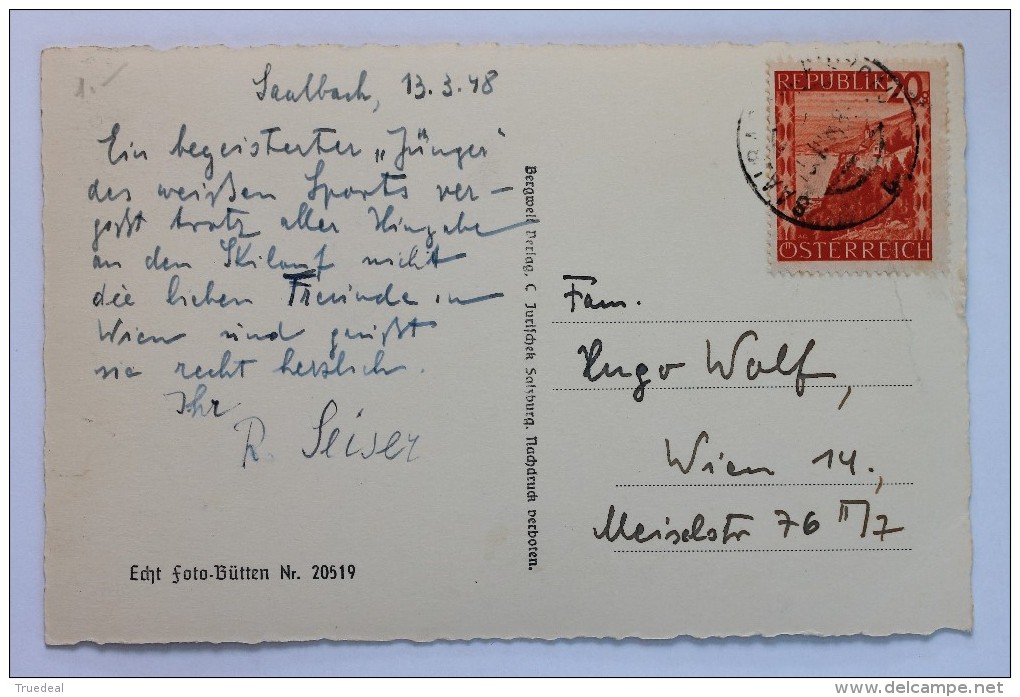 1.-
Saalbach, 13.3.48
Ein begeisterter „Jünger"
des weißen Sports ver-
gißt trotz aller Hingabe
an den Skilauf nicht
die lieben Freunde in
Wien und grüßt
sie recht herzlich.
Ihr
R. Seiser
Echt Foto-Bütten Nr. 20519
Bergwelt Verlag, C. Jurischek Salzburg. Nachdruck verboten.
REPUBLIK 20
ÖSTERREICH
SAALBACH
Fam.
Hugo Wolf,
Wien 14.,
Meiselstr 76 II/7
Truedeal
www.delcampe.net